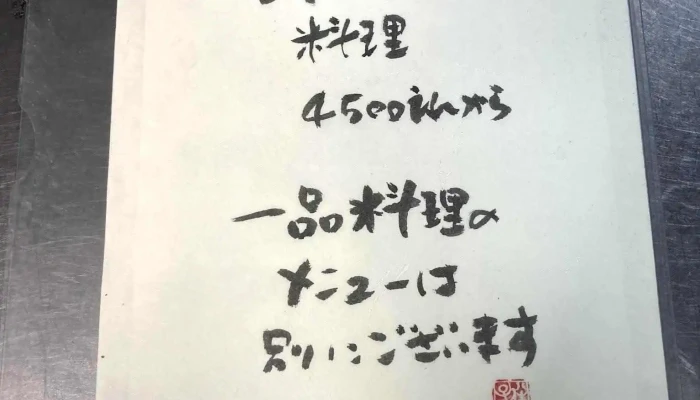 料理
4500えんから
一品料理の
メニューは
別にございます